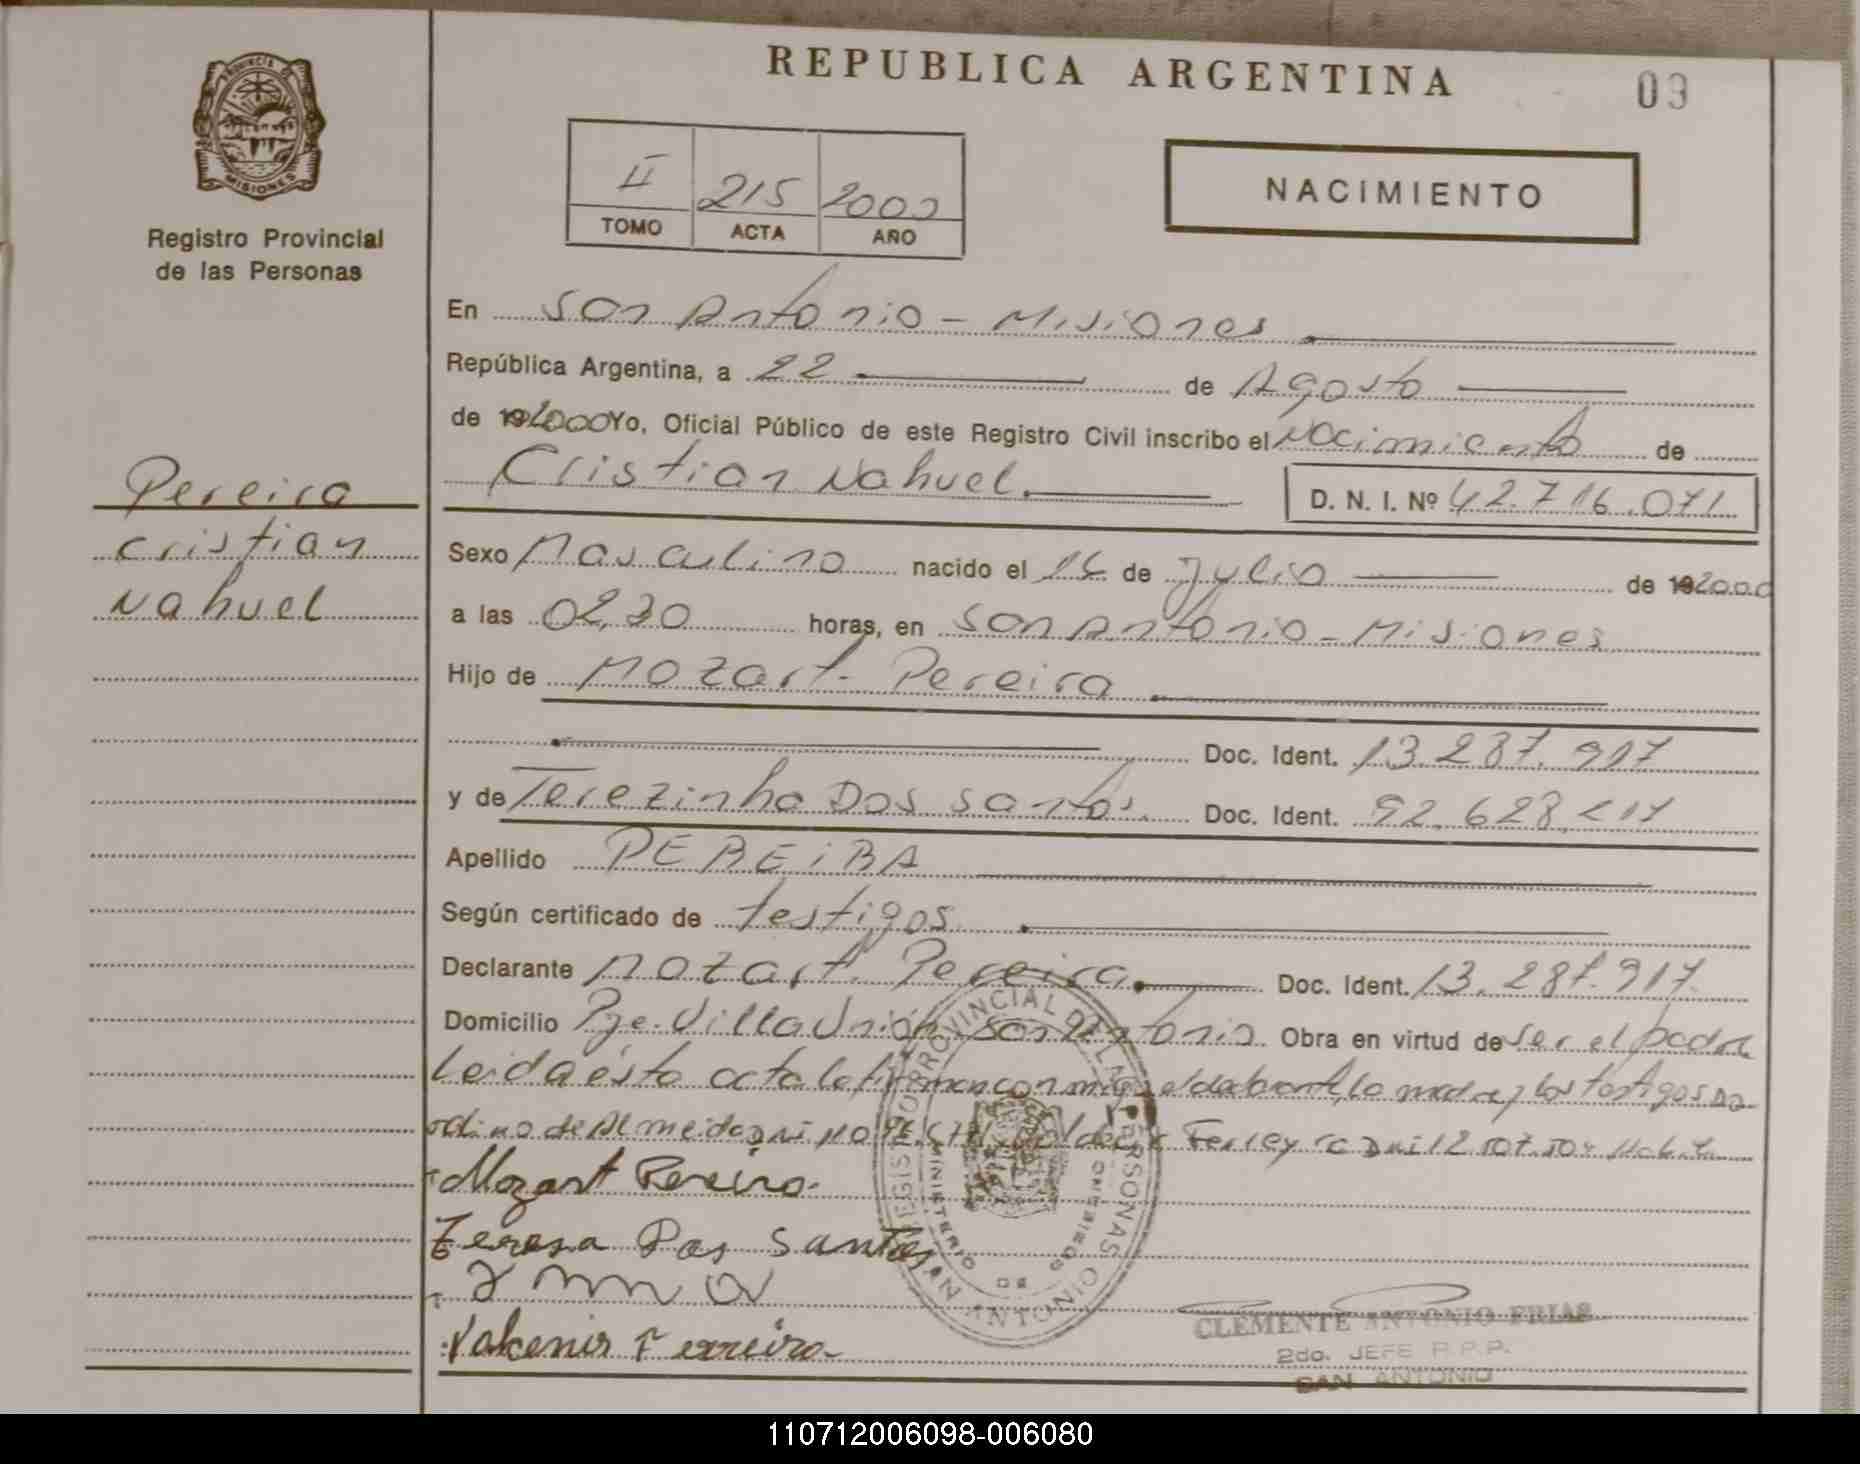 REPUBLICA ARGENTINA
09
PROVINCIA DE
MISIONES
Registro Provincial
de las Personas
II 215 2000
TOMO ACTA AÑO
NACIMIENTO
En San Antonio - Misiones
República Argentina, a 22 de Agosto
de 192000 Yo, Oficial Público de este Registro Civil inscribo el Nacimiento de
Cristian Nahuel D. N. I. Nº 42.716.071
Pereira
Cristian
Nahuel
Sexo Masculino nacido el 16 de Julio de 192000
a las 02,30 horas, en San Antonio - Misiones
Hijo de Mozart Pereira
Doc. Ident. 13.287.917
y de Terezinha Dos Santos. Doc. Ident. 92.628.
Apellido PEREiRA
Según certificado de testigos
Declarante Mozart Pereira Doc. Ident. 13.287.917.
Domicilio Pje. Villa Unión San Antonio. Obra en virtud de ser el padre
Leida ésta acta la firman conmigo el declarante, la madre y los testigos
de Almeida DNI Nº Ferreyra DNI 12.507.
Mozart Pereira.
Teresa Dos Santos
Valcenir Ferreira
REGISTRO PROVINCIAL DE LAS PERSONAS
MINISTERIO DE GOBIERNO
SAN ANTONIO
CLEMENTE ANTONIO FRIAS
2do. JEFE R.P.P.
SAN ANTONIO
110712006098-006080